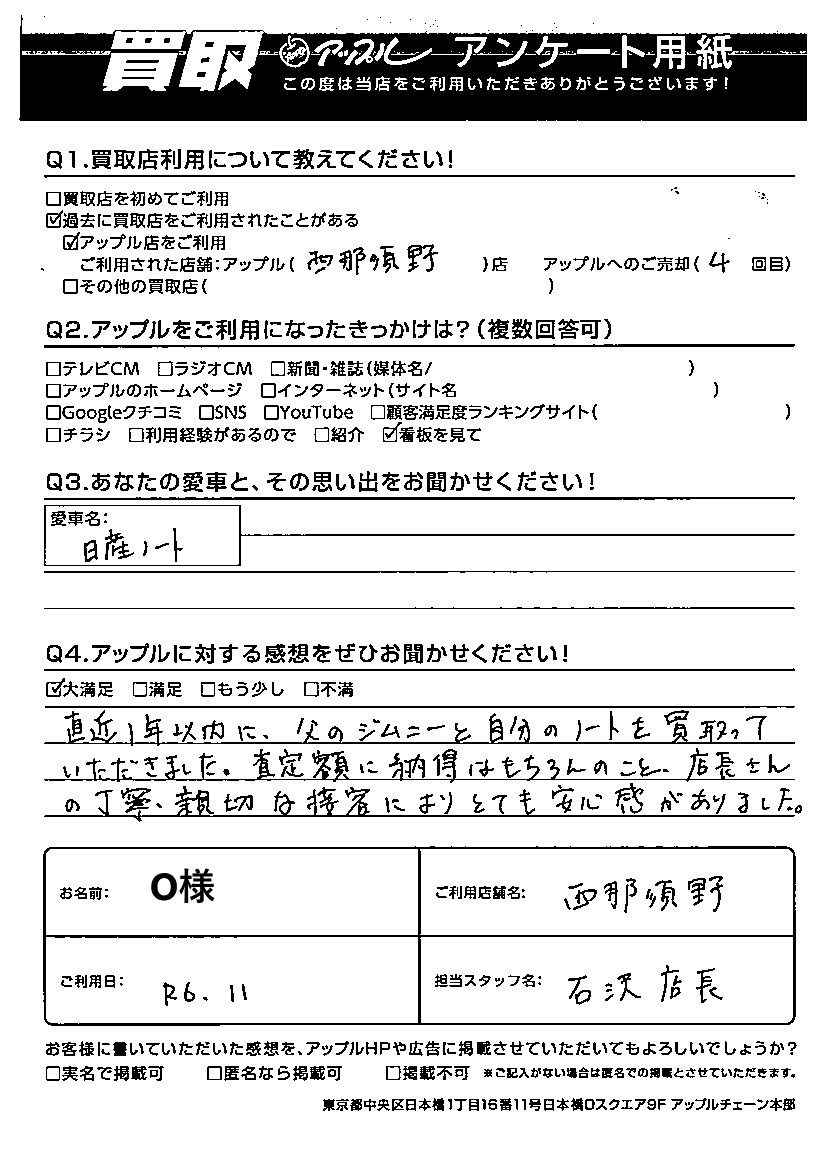 買取 アップル アンケート用紙
この度は当店をご利用いただきありがとうございます!
Q1.買取店利用について教えてください!
□買取店を初めてご利用
☑過去に買取店をご利用されたことがある
☑アップル店をご利用
ご利用された店舗:アップル( 西那須野 )店 アップルへのご売却( 4 回目)
□その他の買取店( )
Q2.アップルをご利用になったきっかけは?(複数回答可)
□テレビCM □ラジオCM □新聞・雑誌(媒体名/ )
□アップルのホームページ □インターネット(サイト名 )
□Googleクチコミ □SNS □YouTube □顧客満足度ランキングサイト( )
□チラシ □利用経験があるので □紹介 ☑看板を見て
Q3.あなたの愛車と、その思い出をお聞かせください!
愛車名:
日産ノート
Q4.アップルに対する感想をぜひお聞かせください!
☑大満足 □満足 □もう少し □不満
直近1年以内に、父のジムニーと自分のノートを買取って
いただきました。査定額に納得はもちろんのこと、店長さん
の丁寧、親切な接客によりとても安心感がありました。
お名前: O様 ご利用店舗名: 西那須野
ご利用日: R6.11 担当スタッフ名: 石沢店長
お客様に書いていただいた感想を、アップルHPや広告に掲載させていただいてもよろしいでしょうか?
□実名で掲載可 □匿名なら掲載可 □掲載不可 ※ご記入がない場合は匿名での掲載とさせていただきます。
東京都中央区日本橋1丁目16番11号日本橋Dスクエア9F アップルチェーン本部